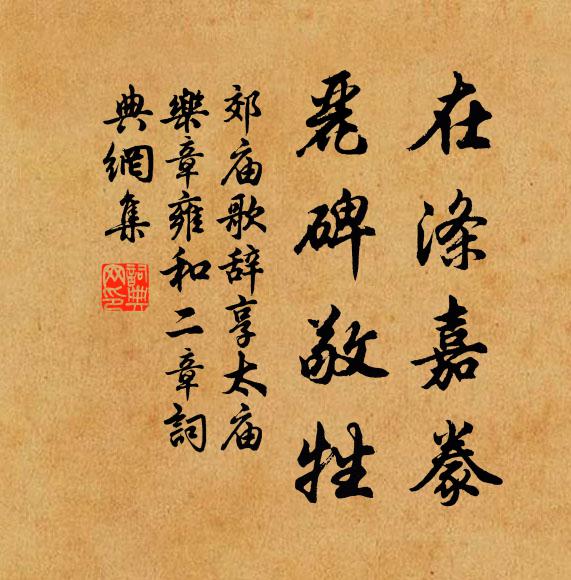 在涤嘉豢
丽碑敬牲
郊庙歌辞享太庙
樂章雍和二章詞
典網集
詞典网印